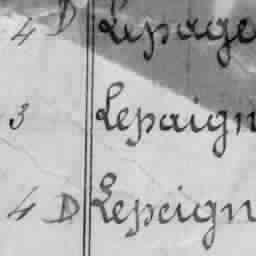 4 D Lepage
3 Lepaign
4 D Lepeign